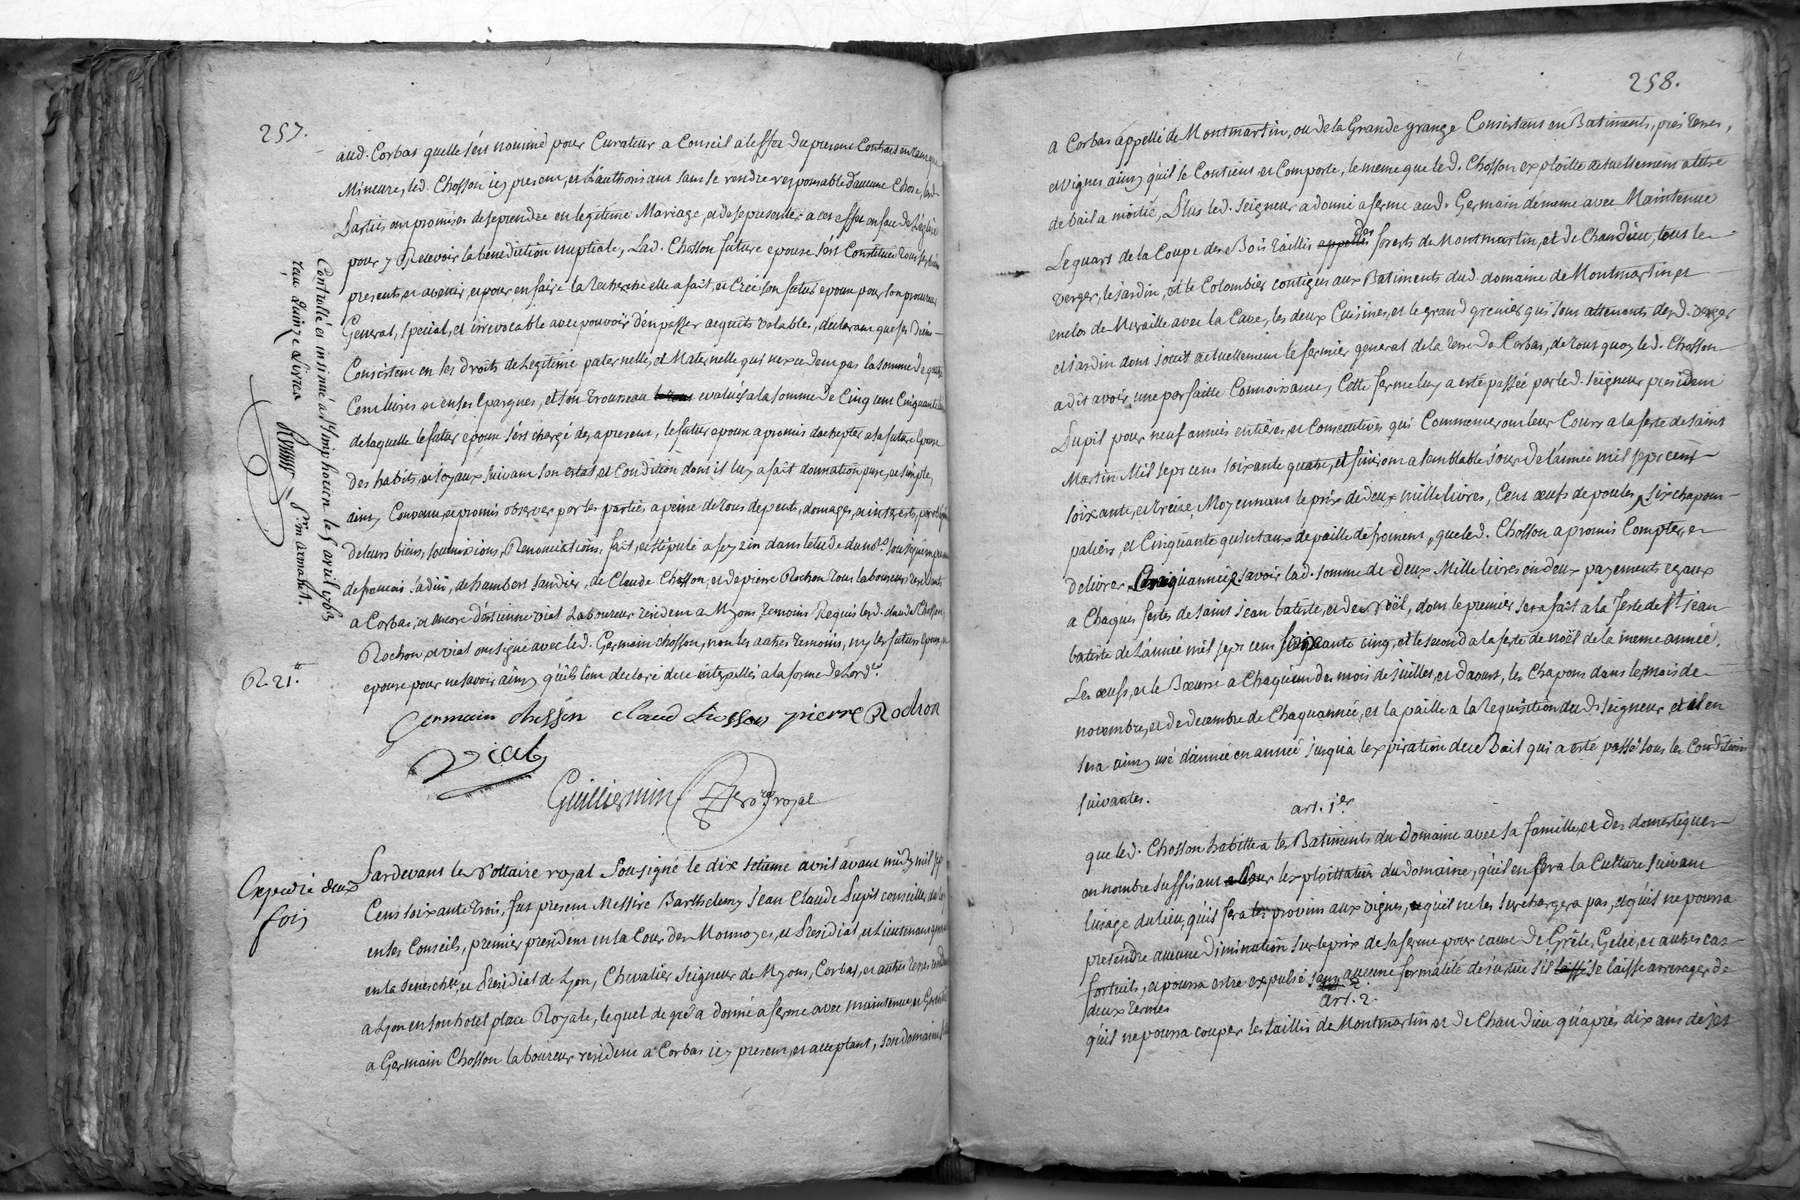 257.
aud. Corbas quelle s'ést nommé pour Curateur a Conseil à leffet du present Contract en tant que
Mineure, led. Chosson icy present, et l'authorisant sans se rendre responsable d'aucune Chose, lesd.
Parties ont promis de se prendre en legitime Mariage, et de se presenter a cet effet en face de L'eglise
pour y Recevoir la bénédiction nuptiale, Lad. Chosson future epouse s'est Constituée tous ses biens
presents, et avenir, et pour en faire la recherche elle a fait, et Créé son futur epoux pour son procureur
General, spécial, et irrévocable avec pouvoir d'en passer acquits valables, declarant que ses droits
Consistent en ses droits de Legitime paternelle, et Maternelle qui n'excedent pas la somme de quatre
Cent livres et en ses Epargnes, et son Trousseau evalués a la somme de Cinq cent Cinquante
de laquelle le futur epoux s'est chargé des a present, le futur epoux a promis d'achepter a sa future Epouse
des habits, et joyaux suivant son estat et Condition dont il luy a fait donnation pure, et simple,
ainsy Convenu, et promis observer par les parties a peine de tous depents, domages, et interets, par
de leurs biens, soumissions, Renonciations, fait, et stipulé a feyzin dans l'etude du no.re sousigné
de francois Jadin, de hambert Sandier, de Claude Chosson, et de pierre Rochon tous laboureurs residants
a Corbas, et encore d'étienne viat Laboureur résident a Myons, témoins Requis lesd. claude Chosson,
Rochon, et viat ont signé avec led. Germain chosson, non les autres temoins, ny les futurs epoux, et
epouse pour ne savoir ainsy qu'ils l'ont declaré de ce interpellés a la forme de Lord.ce
Controllé et insinué a St Simphorien le 5 avril 1763
reçu quinze Livres
R. 21.tt
Germain chosson claud chosson pierre Rochon
Viat
Guilliermin no.re royal
Expedié deux
fois
Pardevant le Nottaire royal Sousigné le dix avril avant midy mil sept
Cent soixante Trois, fut present Messire Barthelemy Jean Claude Pupil conseiller du Roy
en ses Conseils, premier president en la Cour des Monnoyes, et Presidial, et Lieutenant general
en la Senechée, et Présidial de Lyon, Chevalier Seigneur de Myons, Corbas, et autres terres
a Lyon en son hotel place Royale, lequel de gré a donné a ferme avec maintenue et Garantie
a Germain Chosson laboureur résident a Corbas icy present, et acceptant, son domaine
258.
a Corbas appellé de Montmartin, ou de la Grande grange Consistant en Batiments, prés terres,
et vignes ainsy qu'il se Contient et Comporte, le meme que led. Chosson exploitte actuellement a titre
de bail a moitié, Plus led. seigneur a donné a ferme aud. Germain de meme avec Maintenue
Le quart de la Coupe des Bois Taillis des forests de Montmartin, et de Chandieu, tous le
verger, le jardin, et le Colombier contigus aux Batiments dud. domaine de Montmartin et
enclos de Muraille avec la Cave, les deux Cuisines, et le grand grenier qui sont attenants desd. verger
et jardin dont jouit actuellement le fermier general de la terre de Corbas, de tout quoy led. Chosson
a dit avoir une parfaitte Connoissance, Cette ferme luy a esté passée par led. seigneur president
Pupil pour neuf années entières, et Consecutives qui Commenceront leur Cours a la feste de saint
Martin Mil sept cent soixante quatre, et finiront a semblable jour de l'année mil sept cent
soixante, et treize, Moyennant le prix de deux mille livres, Cent œufs de poules, six chapons
paliers, et Cinquante quintaux de paille de froment, que led. Chosson a promis Compter, et
delivrer Chaquannée, savoir lad. somme de deux Mille livres en deux payements egaux
a Chaques festes de saint jean batiste, et de noël, dont le premier sera fait a la feste de St. jean
batiste de l'année mil sept cent soixante cinq, et le second a la feste de noël de la meme année,
Les œufs, et le Beurre a Chaqu'un des mois de juillet, et d'aoust, les Chapons dans les mois de
novembre, et de decembre de Chaquannée, et la paille a la requisition dud. seigneur et il en
sera ainsy usé d'année en année jusqu'a l'expiration de ce Bail qui a esté passé sous les Conditions
suivantes.
art. 1.er
que led. Chosson habittera les Batiments du domaine avec sa famille, et des domestiques
en nombre suffisant pour l'exploittation du domaine, qu'il en fera la Culture suivant
l'usage du lieu, qu'il fera les provins aux vignes, et qu'il ne les surchargera pas, et qu'il ne pourra
pretendre aucune diminution sur le prix de sa ferme pour cause de Grêle, Gelée, et autres cas
fortuits, et pourra estre expulsé sans aucune formalité de justice s'il laisse se laisse arrerager de
deux termes
art. 2.
qu'il ne pourra couper les taillis de Montmartin et de Chandieu qu'après dix ans de